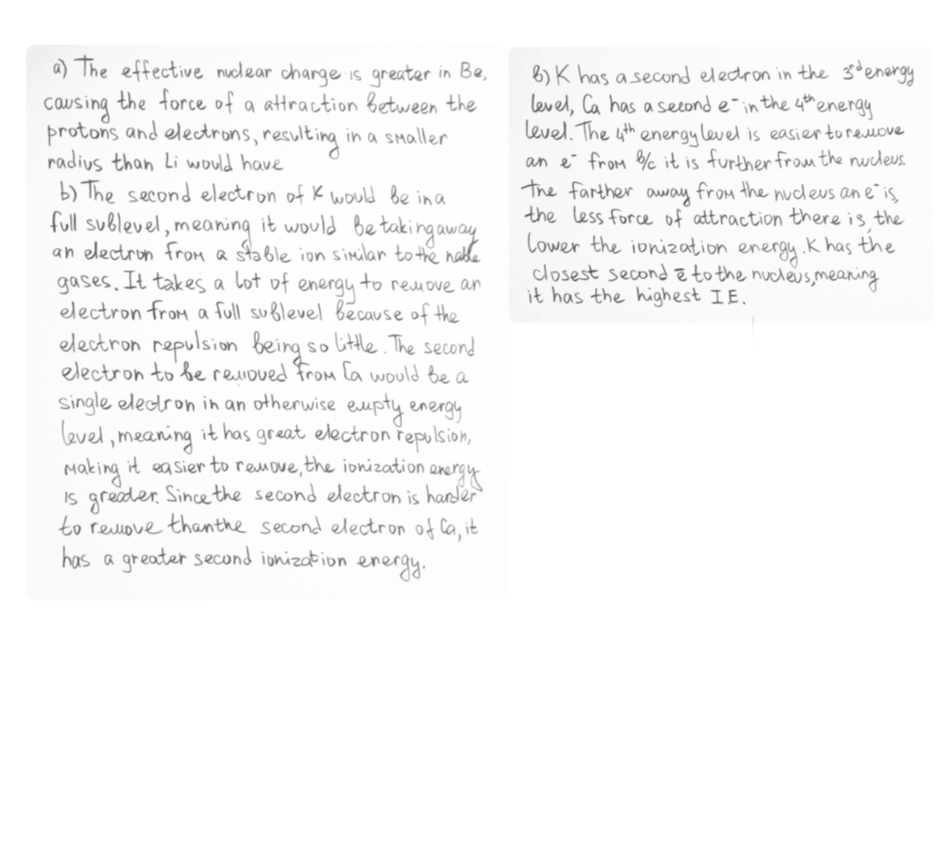 a) The effective nuclear charge is greater in Be,
causing the force of a attraction between the
protons and electrons, resulting in a smaller
radius than Li would have
b) The second electron of K would be in a
full sublevel, meaning it would be taking away
an electron from a stable ion similar to the noble
gases. It takes a lot of energy to remove an
electron from a full sublevel because of the
electron repulsion being so little. The second
electron to be removed from Ca would be a
single electron in an otherwise empty energy
level, meaning it has great electron repulsion,
making it easier to remove, the ionization energy
is greater. Since the second electron is harder
to remove than the second electron of Ca, it
has a greater second ionization energy.
b) K has a second electron in the 3rd energy
level, Ca has a second e⁻ in the 4th energy
level. The 4th energy level is easier to remove
an e⁻ from b/c it is further from the nucleus.
The farther away from the nucleus an e⁻ is,
the less force of attraction there is, the
lower the ionization energy. K has the
closest second e̅ to the nucleus, meaning
it has the highest IE.